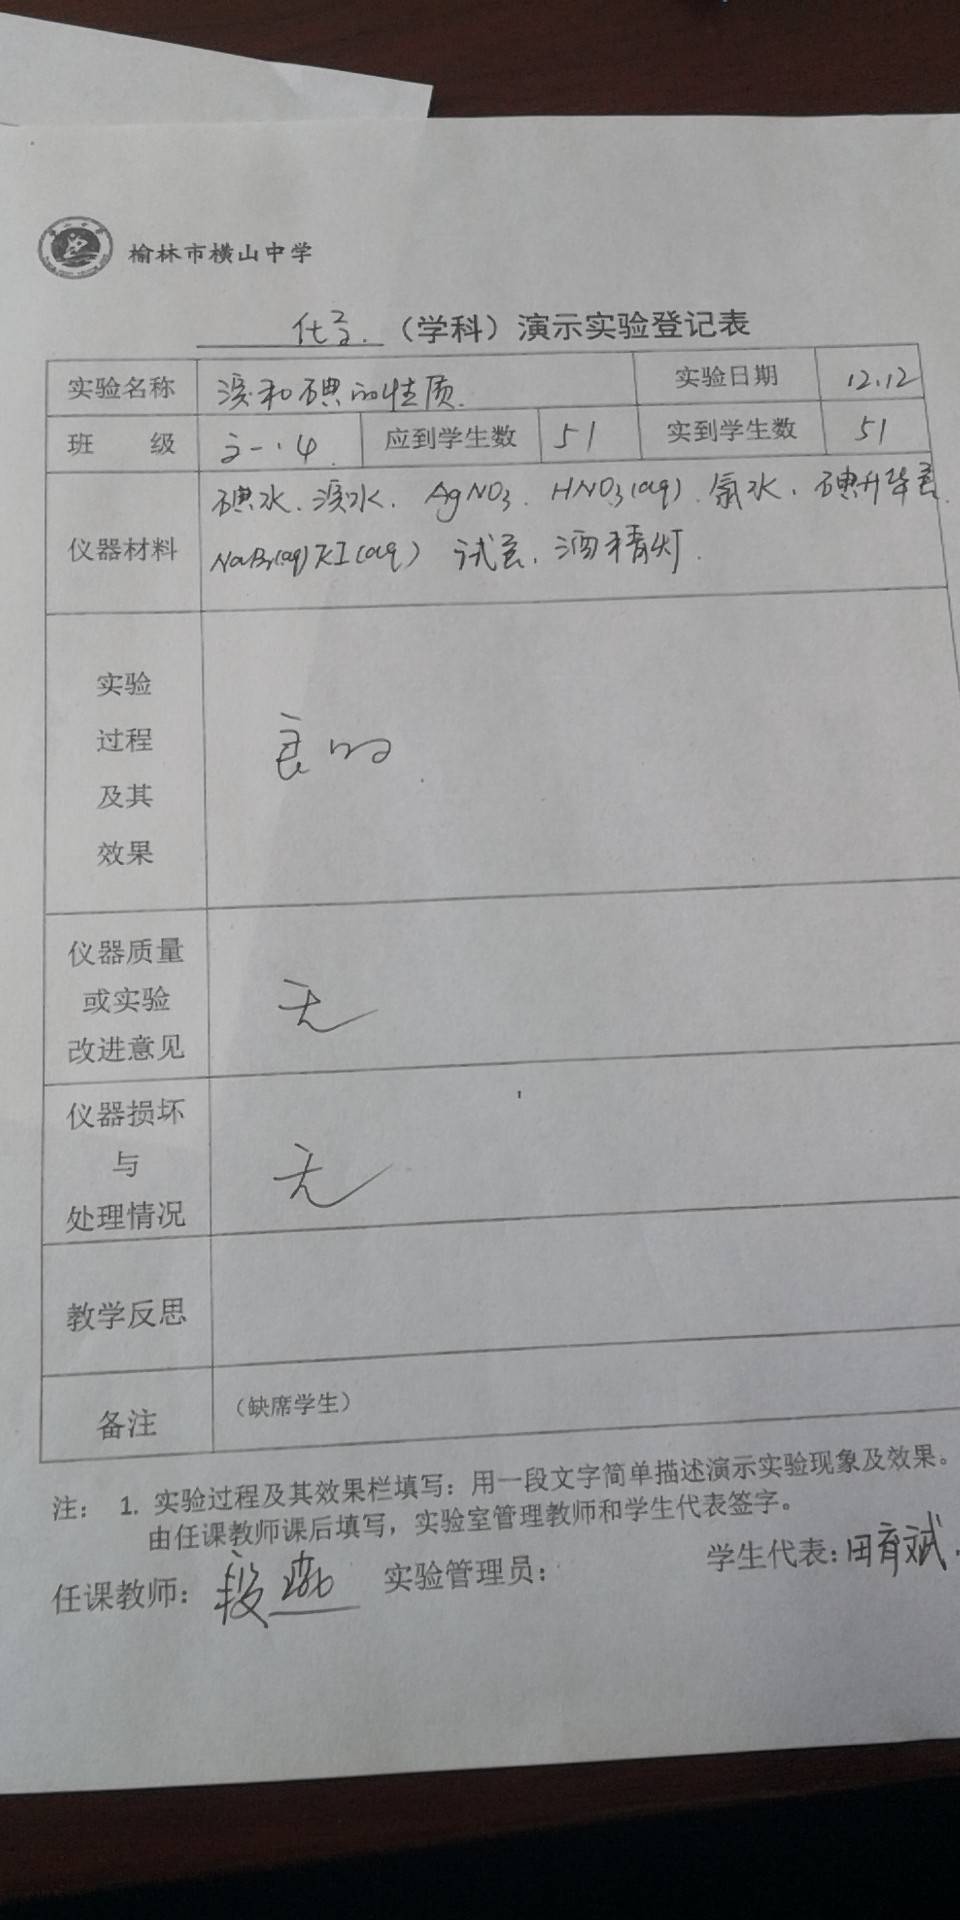 榆林市横山中学
化学 (学科)演示实验登记表
实验名称 溴和碘的性质. 实验日期 12.12
班 级 高一.4 应到学生数 51 实到学生数 51
仪器材料
碘水、溴水、AgNO3、HNO3(aq)、氯水、碘升华管
NaBr(aq) KI(aq) 试管、酒精灯.
实验
过程
及其
效果
良好
仪器质量
或实验
改进意见
无
仪器损坏
与
处理情况
无
教学反思
备注 (缺席学生)
注: 1. 实验过程及其效果栏填写:用一段文字简单描述演示实验现象及效果。
由任课教师课后填写,实验室管理教师和学生代表签字。
任课教师: 段 实验管理员: 学生代表:田育斌.